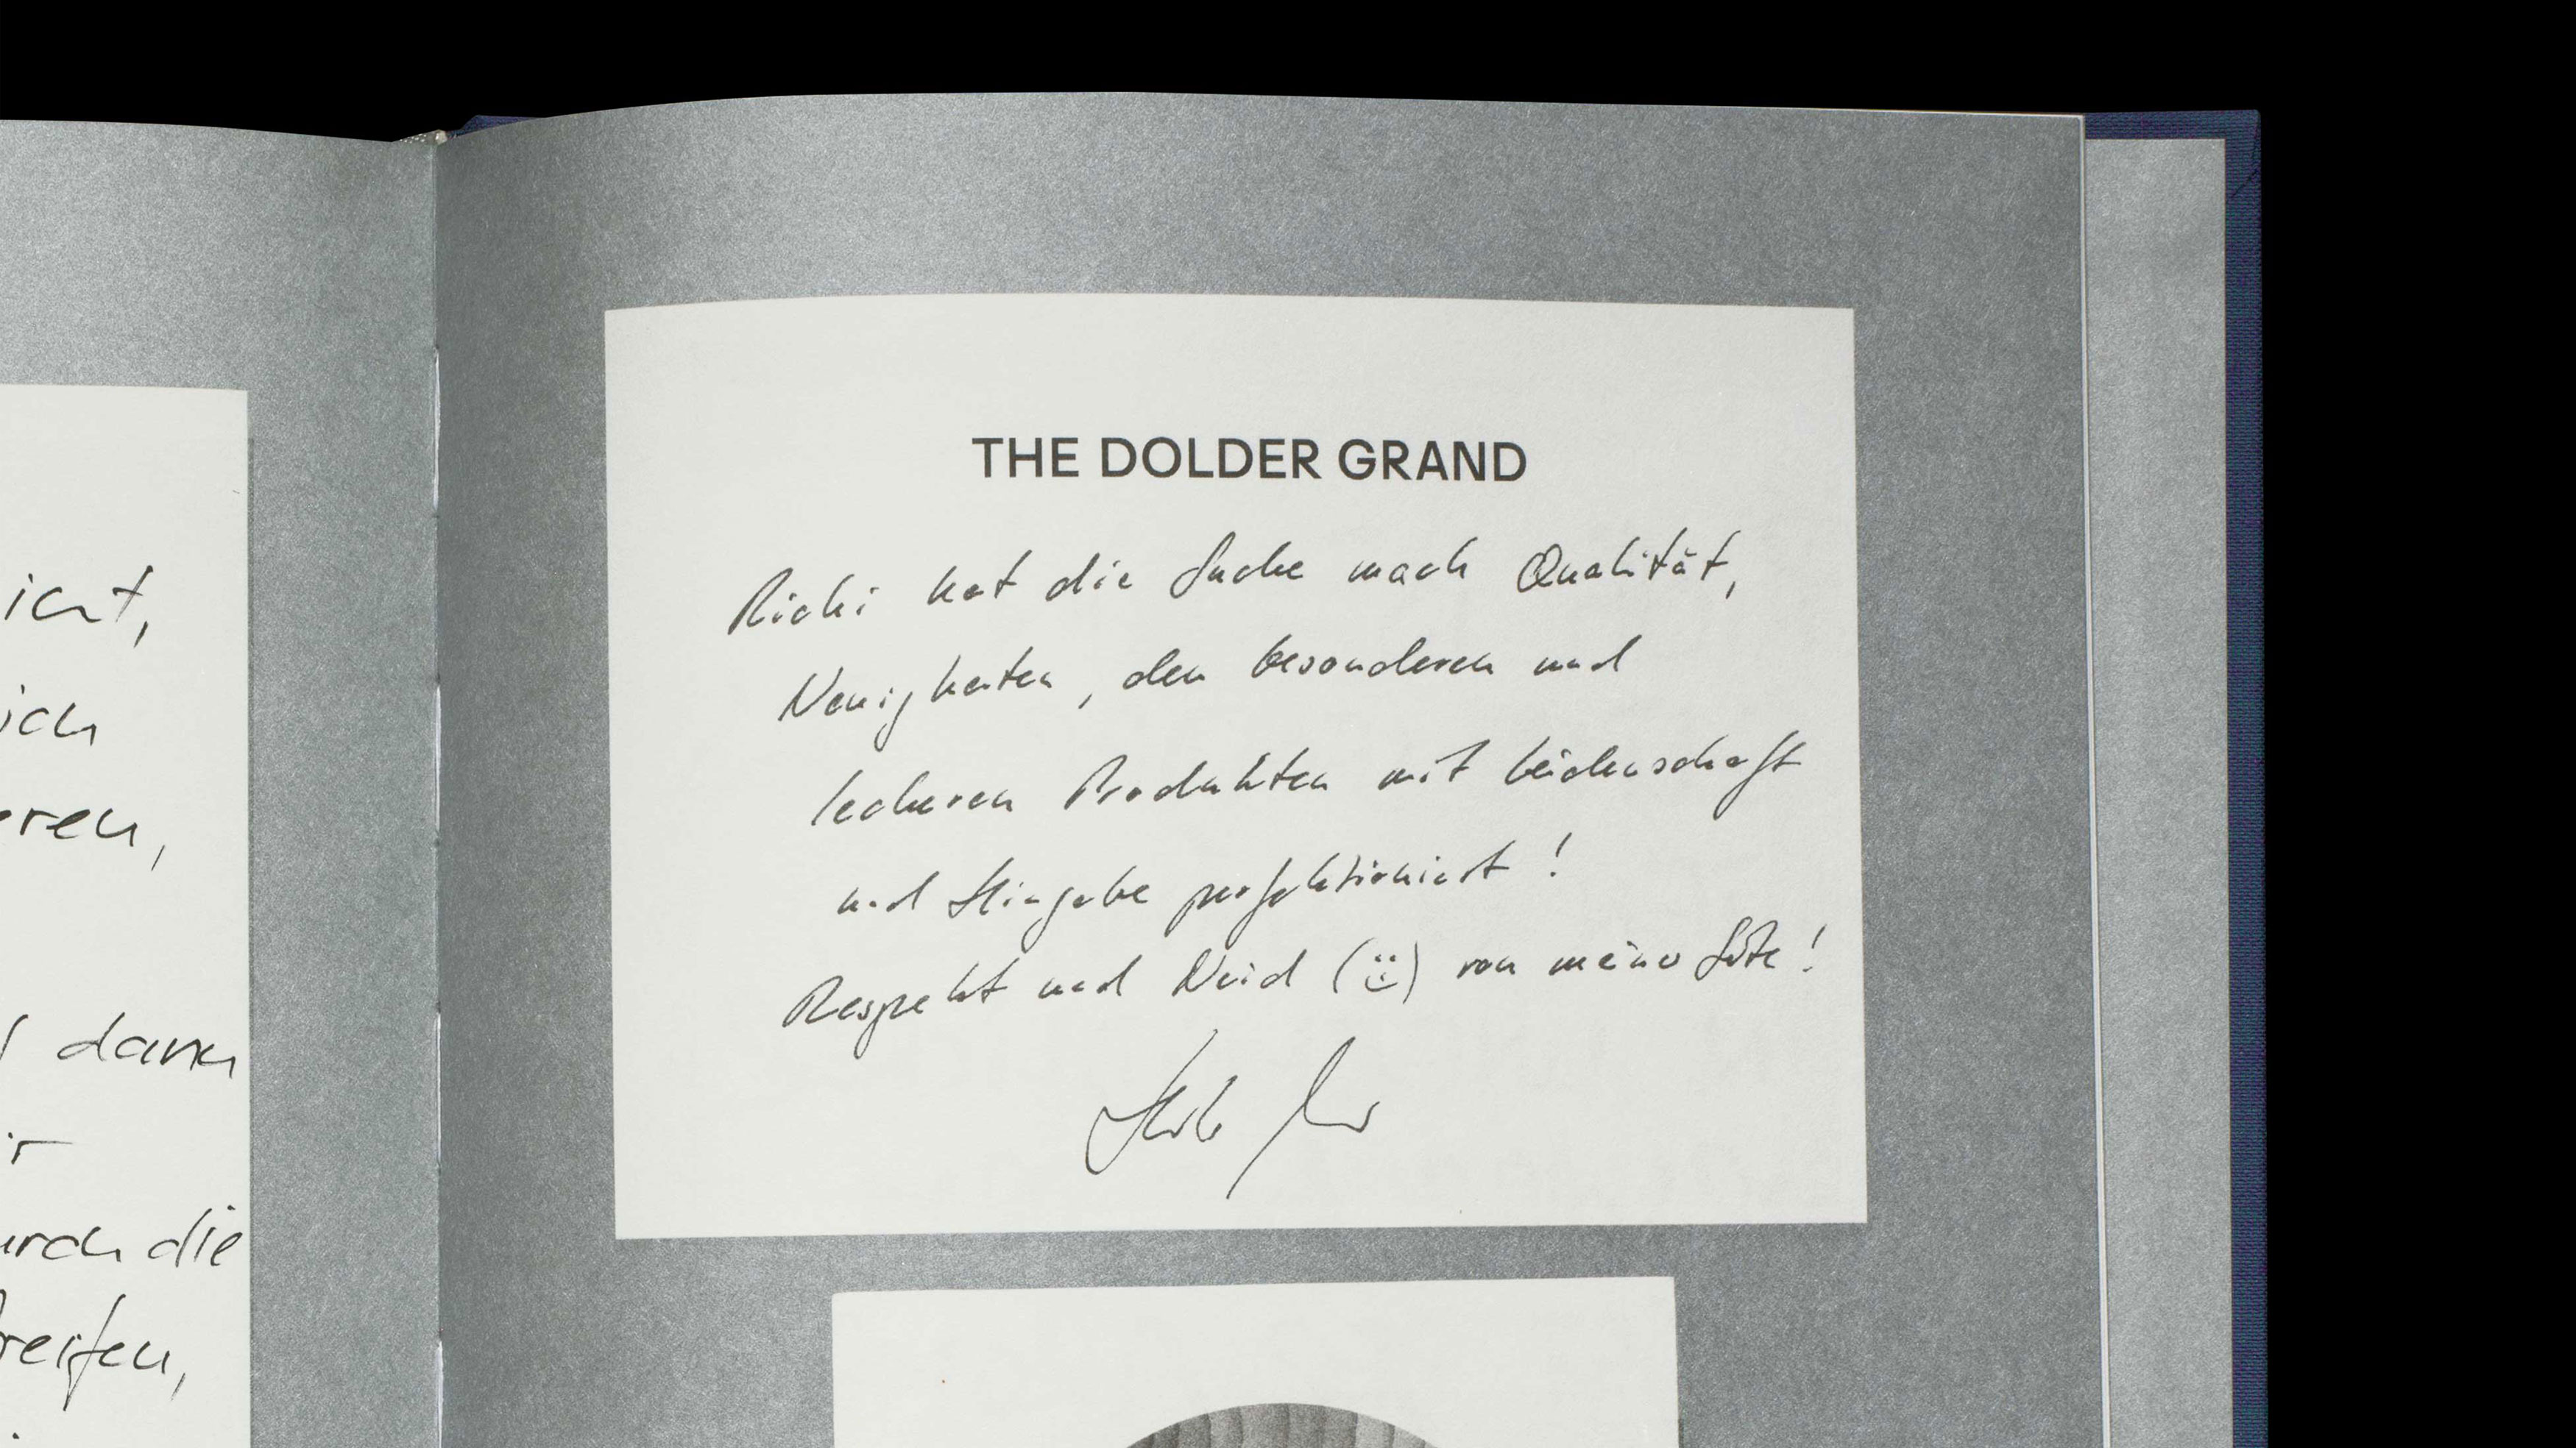 icht,
ich
eren,
dann
ir
urch die
reifen,
THE DOLDER GRAND
Richi hat die Suche nach Qualität,
Neuigkeiten, den besonderen und
leckeren Produkten mit Leidenschaft
und Hingabe perfektioniert!
Respekt und Neid (:) von meiner Seite!